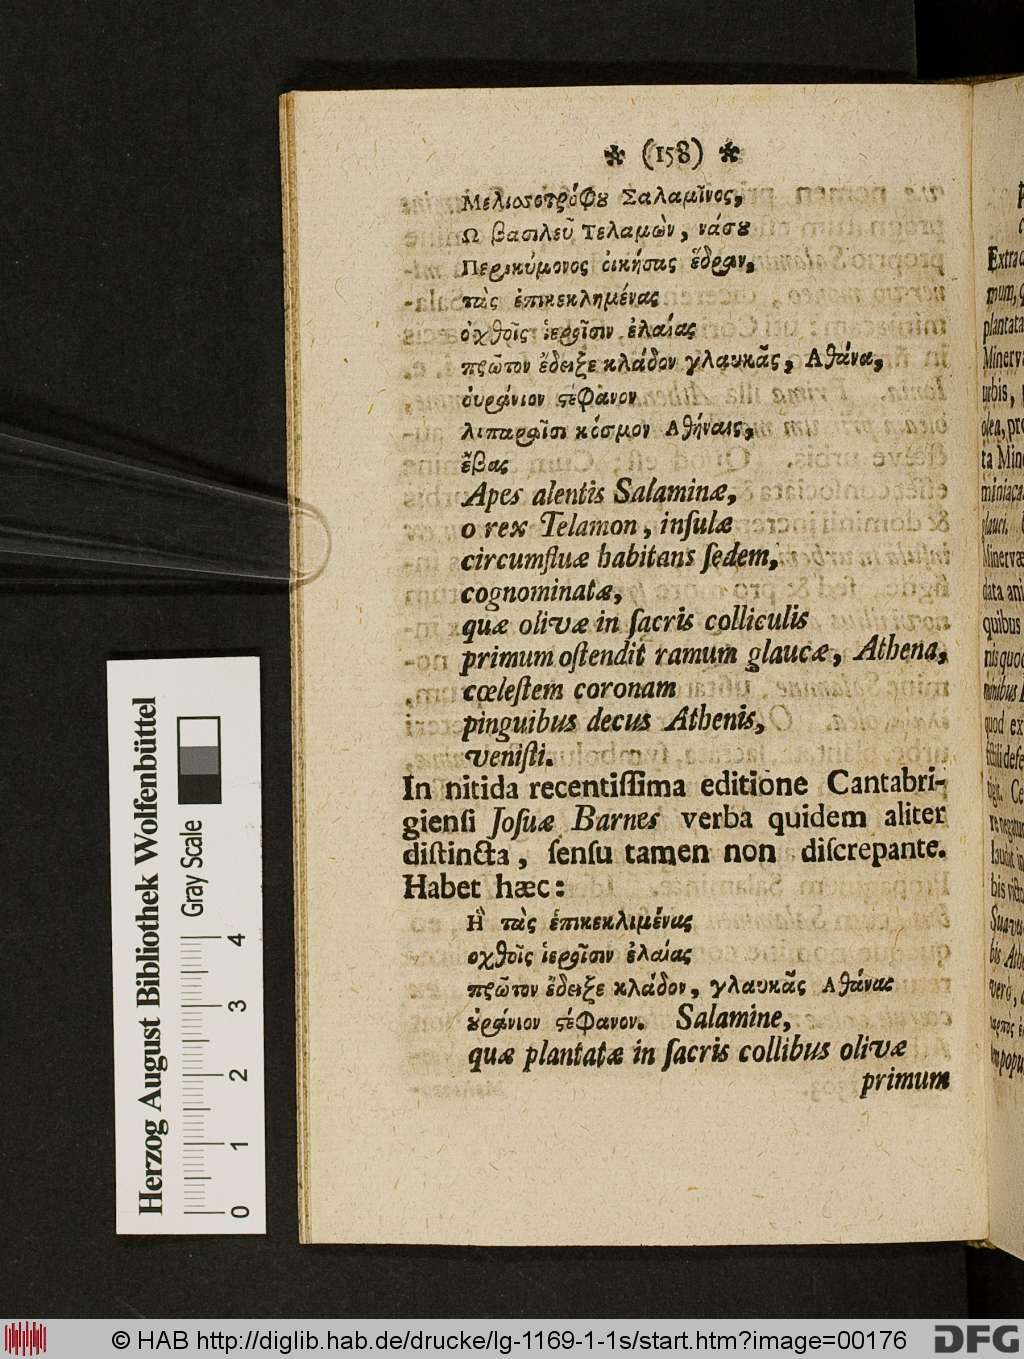 ✲ (158) ✲
Μελισσοτρόφου Σαλαμῖνος,
Ω βασιλεῦ Τελαμὼν, νάσου
Περικύμονος οἰκήσας ἕδραν,
τᾶς ἐπικεκλημένας
ὀχθοῖς ἱεροῖσιν ἐλαίας
πρῶτον ἔδειξε κλάδον γλαυκᾶς, Αθάνα,
οὐράνιον στέφανον
λιπαραῖσι κόσμον Αθήναις,
ἔβας
Apes alentis Salaminæ,
o rex Telamon, inſulæ
circumfluæ habitans ſedem,
cognominatæ,
quæ olivæ in ſacris colliculis
primum oſtendit ramum glaucæ, Athena,
cœleſtem coronam
pinguibus decus Athenis,
veniſti.
In nitida recentiſſima editione Cantabri-
gienſi Joſuæ Barnes verba quidem aliter
diſtincta, ſenſu tamen non diſcrepante.
Habet hæc:
Η τὰς ἐπικεκλιμένας
οχθοῖς ἱεροῖσιν ἐλαίας
πρῶτον ἔδειξε κλάδον, γλαυκᾶς Αθάνας
οὐράνιον στέφανον. Salamine,
quæ plantatæ in ſacris collibus olivæ
primum
Extrac
mum,
plantata
Minerv
urbis,
olea, pro
ta Min
miniaca
glauci.
Minervæ
data ani
quibus
nis quod
minibus
quod ex
Herzog August Bibliothek Wolfenbüttel
Gray Scale
0 1 2 3 4
© HAB http://diglib.hab.de/drucke/lg-1169-1-1s/start.htm?image=00176
DFG